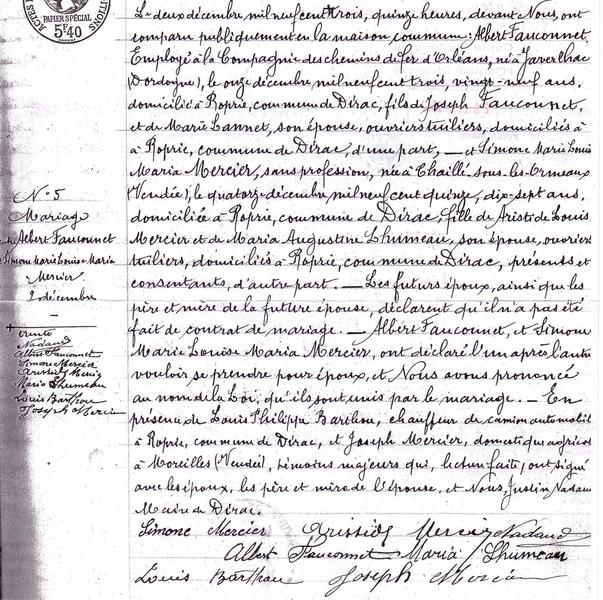 PAPIER SPÉCIAL
5F40
Le deux décembre mil neuf cent trois, quinze heures, devant Nous, ont
comparu publiquement en la maison commune: Albert Fauconnet,
Employé à la Compagnie des chemins de fer d'Orléans, né à Javerlhac
(Dordogne), le onze décembre mil neuf cent trois, vingt-neuf ans,
domicilié à Roprie, commune de Dirac, fils de Joseph Fauconnet,
et de Marie Lannet, son épouse, ouvriers tuiliers, domiciliés à
à Roprie, commune de Dirac, d'une part, — et Simone Marie Louis
Maria Mercier, sans profession, née à Chaillé-sous-les-Ormeaux
(Vendée), le quatorze décembre mil neuf cent quinze, dix-sept ans,
domiciliée à Roprie, commune de Dirac, fille de Aristide Louis
Mercier et de Maria Augustine Lhumeau, son épouse, ouvriers
tuiliers, domiciliés à Roprie, commune de Dirac, présents et
consentants, d'autre part. — Les futurs époux, ainsi que les
père et mère de la future épouse, déclarent qu'il n'a pas été
fait de contrat de mariage. — Albert Fauconnet, et Simone
Marie Louise Maria Mercier, ont déclaré l'un après l'autre
vouloir se prendre pour époux, et Nous avons prononcé
au nom de la Loi, qu'ils sont unis par le mariage. — En
présence de Louis Philippe Barthou, chauffeur de camion automobil
à Roprie, commune de Dirac, et Joseph Mercier, domestique agricol
à Moreilles (Vendée), témoins majeurs qui, lecture faite, ont signé
avec les époux, les père et mère de l'épouse, et Nous, Justin Nadau
Maire de Dirac.
Simone Mercier Aristide Mercier Nadaud
Albert Fauconnet Maria Lhumeau
Louis Barthou Joseph Mercier
N° 5
Mariage
Albert Fauconnet
Simone Marie Louise Maria
Mercier
2 décembre
trente
Nadaud
Albert Fauconnet
Simone Mercier
Aristide Mercier
Maria Lhumeau
Louis Barthou
Joseph Mercier